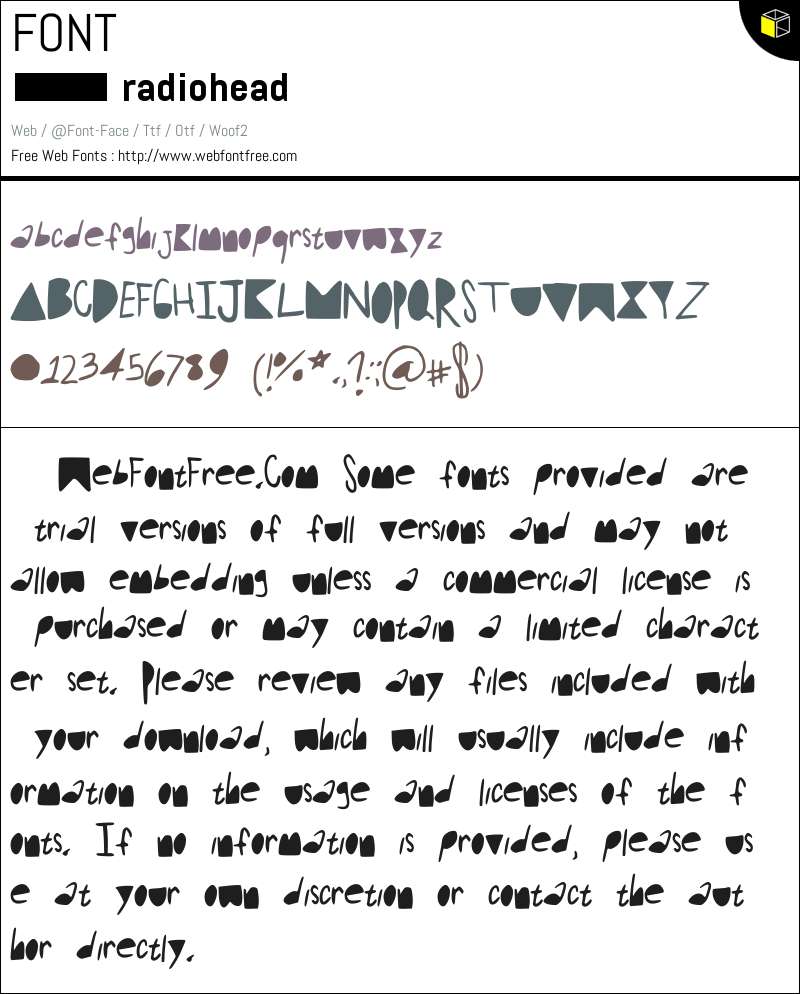 FONT
radiohead
Web / @Font-Face / Ttf / Otf / Woof2
Free Web Fonts : http://www.webfontfree.com
abcdefghijklmnopqrstuvwxyz
ABCDEFGHIJKLMNOPQRSTUVWXYZ
0123456789 (!%*.,?:;@#$)
WebFontFree.Com Some fonts provided are
trial versions of full versions and may not
allow embedding unless a commercial license is
purchased or may contain a limited charact
er set. Please review any files included with
your download, which will usually include inf
ormation on the usage and licenses of the f
onts. If no information is provided, please us
e at your own discretion or contact the aut
hor directly.